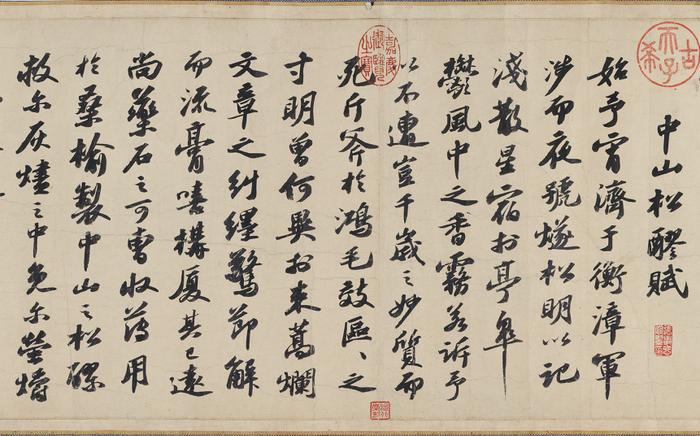 古希天子
中山松醪賦
始予宵濟于衡漳軍
涉而夜號燧松明以記
淺散星宿於亭皋
鬱風中之香霧若訴予
以不遭豈千歲之妙質而
嘉慶御覽之寶
死斤斧於鴻毛效區々之
寸明曾何異於束蒿爛
文章之糾纆驚節解
而流膏嘻構厦其已遠
尚藥石之可曹收薄用
於桑榆製中山之松醪
救尔灰燼之中免尔螢爝